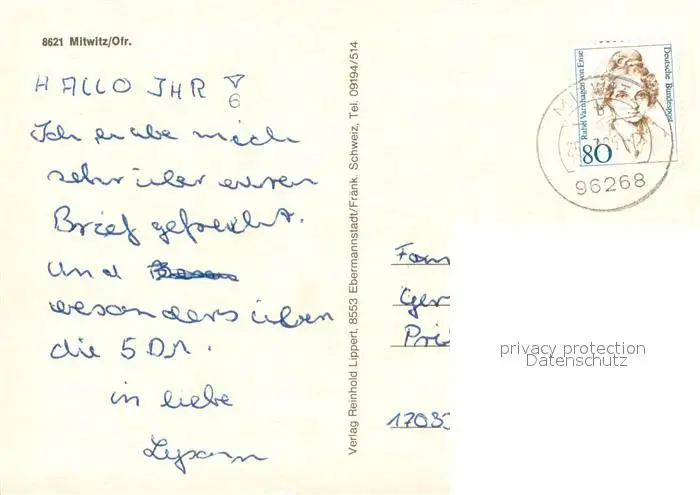 8621 Mitwitz/Ofr.
HALLO IHR
6
Ich habe mich
sehr über euren
Brief gefreut.
Und
besonders über
die 5 DM.
in liebe
Lysann
Verlag Reinhold Lippert, 8553 Ebermannstadt/Fränk. Schweiz, Tel. 09194/514
Rahel Varnhagen von Ense
Deutsche Bundespost
80
96268
Fam
Ger
Pri
17033
privacy protection
Datenschutz